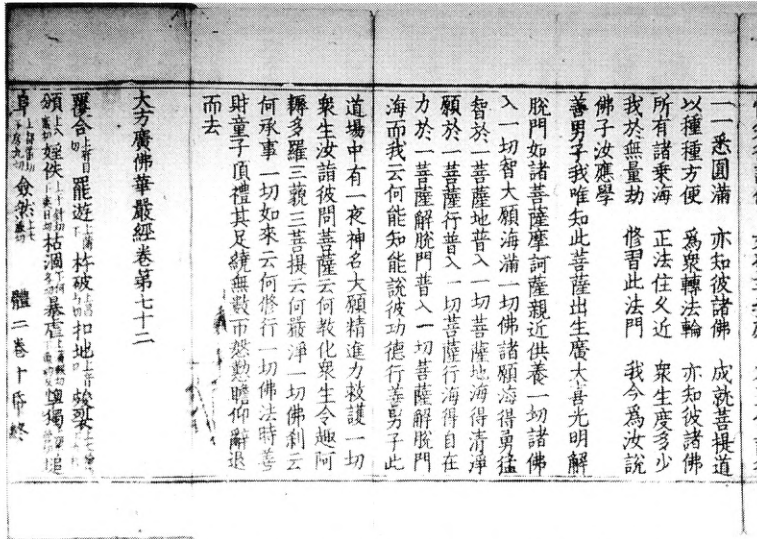 一一悉圓滿 亦知彼諸佛 成就菩提道
以種種方便 爲衆轉法輪 亦知彼諸佛
所有諸乗海 正法住久近 衆生度多少
我於無量劫 修習此法門 我今爲汝說
佛子汝應學
善男子我唯知此菩薩出生廣大喜光明解
脫門如諸菩薩摩訶薩親近供養一切諸佛
入一切智大願海滿一切佛諸願海得勇猛
智於一菩薩地普入一切菩薩地海得清淨
願於一菩薩行普入一切菩薩行海得自在
力於一菩薩解脫門普入一切菩薩解脫門
海而我云何能知能說彼功德行善男子此
道場中有一夜神名大願精進力救護一切
衆生汝詣彼問菩薩云何教化衆生令趣阿
耨多羅三藐三菩提云何嚴淨一切佛刹云
何承事一切如來云何修行一切佛法時善
財童子頂禮其足繞無數帀慇懃瞻仰辭退
而去
大方廣佛華嚴經卷第七十二
覆合 罷遊 杵破 扣地
婬佚 枯涸 暴虐
僉然 體二卷十 終